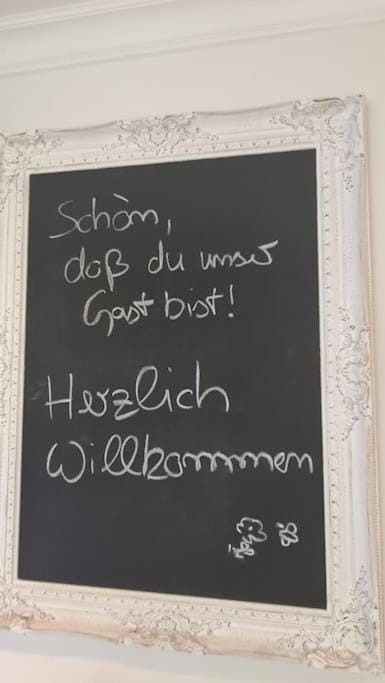 Schön,
daß du unser
Gast bist!
Herzlich
Willkommen